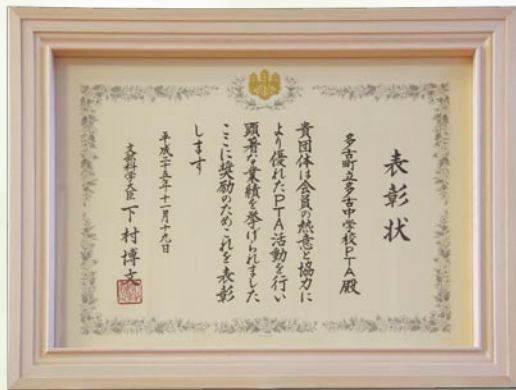 表彰状
多古町立多古中学校PTA殿
貴団体は会員の熱意と協力に
より優れたPTA活動を行い
顕著な業績を挙げられました
ここに奨励のためこれを表彰
します
平成二十五年十一月十九日
文部科学大臣 下村博文